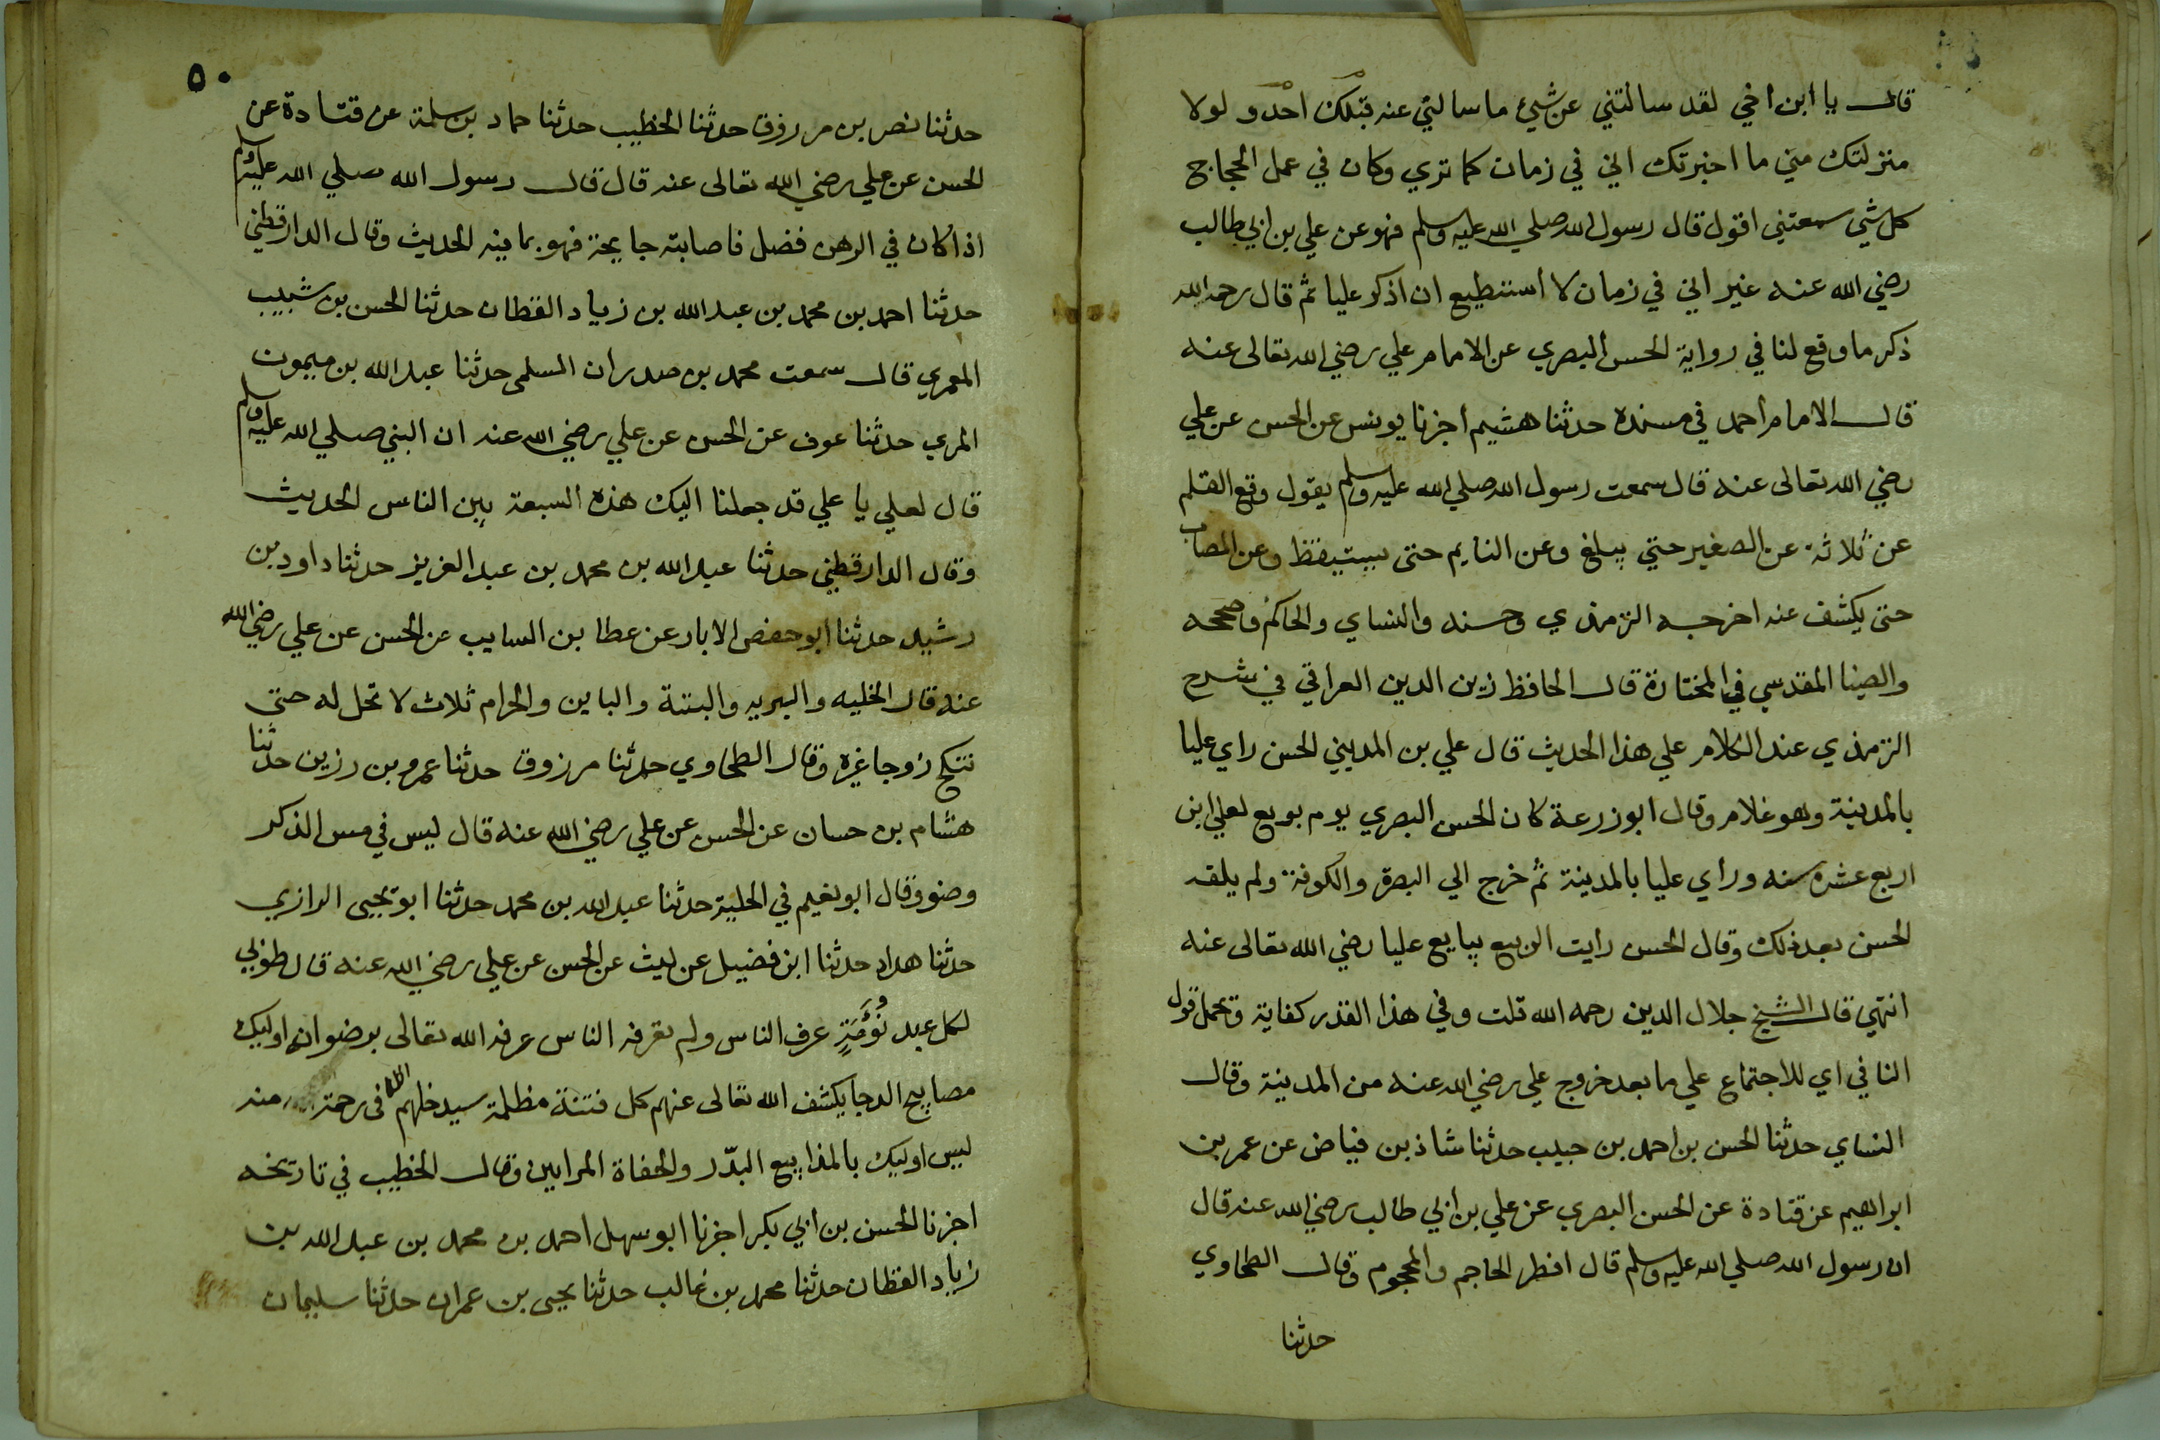 قال يا ابن اخي لقد سالتني عن شيئ ما سالني عنه قبلك احد و لولا
منزلتك مني ما اخبرتك اني في زمان كما تري وكان في عمل الحجاج
كل شي سمعتني اقول قال رسول الله صلي الله عليه وسلم فهو عن علي بن ابي طالب
رضي الله عنه غير اني في زمان لا استطيع ان اذكر عليا ثم قال رحمه الله
ذكر ما وقع لنا في رواية الحسن البصري عن الامام علي رضي الله تعالى عنه
قال الامام احمد في مسنده حدثنا هشيم اخبرنا يونس عن الحسن عن علي
رضي الله تعالى عنه قال سمعت رسول الله صلي الله عليه وسلم يقول رفع القلم
عن ثلاثة عن الصغير حتي يبلغ وعن النايم حتى يستيقظ وعن المصاب
حتى يكشف عنه اخرجه الترمذي وحسنه والنساي والحاكم وصححه
والضيا المقدسي في المختارة قال الحافظ زين الدين العراقي في شرح
الترمذي عند الكلام علي هذا الحديث قال علي بن المديني الحسن راي عليا
بالمدينة وهو غلام وقال ابو زرعة كان الحسن البصري يوم بويع لعلي ابن
اربع عشره سنه وراي عليا بالمدينة ثم خرج الي البصرة والكوفة ولم يلقه
الحسن بعد ذلك وقال الحسن رايت الزبير يبايع عليا رضي الله تعالى عنه
انتهي قال الشيخ جلال الدين رحمه الله قلت وفي هذا القدر كفاية ويحمل قول
النافي اي للاجتماع علي ما بعد خروج علي رضي الله عنه من المدينة وقال
النساي حدثنا الحسن بن احمد بن حبيب حدثنا شاذ بن فياض عن عمر بن
ابراهيم عن قتادة عن الحسن البصري عن علي بن ابي طالب رضي الله عنه قال
ان رسول الله صلي الله عليه وسلم قال افطر الحاجم والمحجوم وقال الطحاوي
حدثنا
٥٠
حدثنا نصر بن مرزوق حدثنا الخطيب حدثنا حماد بن سلمة عن قتادة عن
الحسن عن علي رضي الله تعالى عنه قال قال رسول الله صلي الله عليه وسلم
اذا كان في الرهن فضل فاصابته جايحة فهو بما فيه الحديث وقال الدارقطني
حدثنا احمد بن محمد بن عبد الله بن زياد القطان حدثنا الحسن بن شبيب
المعمري قال سمعت محمد بن صدران السلمي حدثنا عبد الله بن ميمون
المري حدثنا عوف عن الحسن عن علي رضي الله عنه ان النبي صلي الله عليه وسلم
قال لعلي يا علي قد جعلنا اليك هذه السبعة بين الناس الحديث
وقال الدارقطني حدثنا عبد الله بن محمد بن عبد العزيز حدثنا داود بن
رشيد حدثنا ابو حفص الابار عن عطا بن السايب عن الحسن عن علي رضي الله
عنه قال الخليه والبريه والبتة والباين والحرام ثلاث لا تحل له حتى
تنكح زوجا غيره وقال الطحاوي حدثنا مرزوق حدثنا عمرو بن رزين حدثنا
هشام بن حسان عن الحسن عن علي رضي الله عنه قال ليس في مس الذكر
وضو وقال ابو نعيم في الحلية حدثنا عبد الله بن محمد حدثنا ابو يحيى الرازي
حدثنا هداد حدثنا ابن فضيل عن ليث عن الحسن عن علي رضي الله عنه قال طوبي
لكل عبد نُوَمَةٍ عرف الناس ولم تعرفه الناس عرفه الله تعالى برضوان اوليك
مصابيح الدجا يكشف الله تعالى عنهم كل فتنة مظلمة سيدخلهم الله فى رحمة منه
ليس اوليك بالمذاييع البذّر والجفاة المرايين وقال الخطيب في تاريخه
اخبرنا الحسن بن ابي بكر اخبرنا ابو سهل احمد بن محمد بن عبد الله بن
زياد القطان حدثنا محمد بن غالب حدثنا يحيى بن عمران حدثنا سليمان